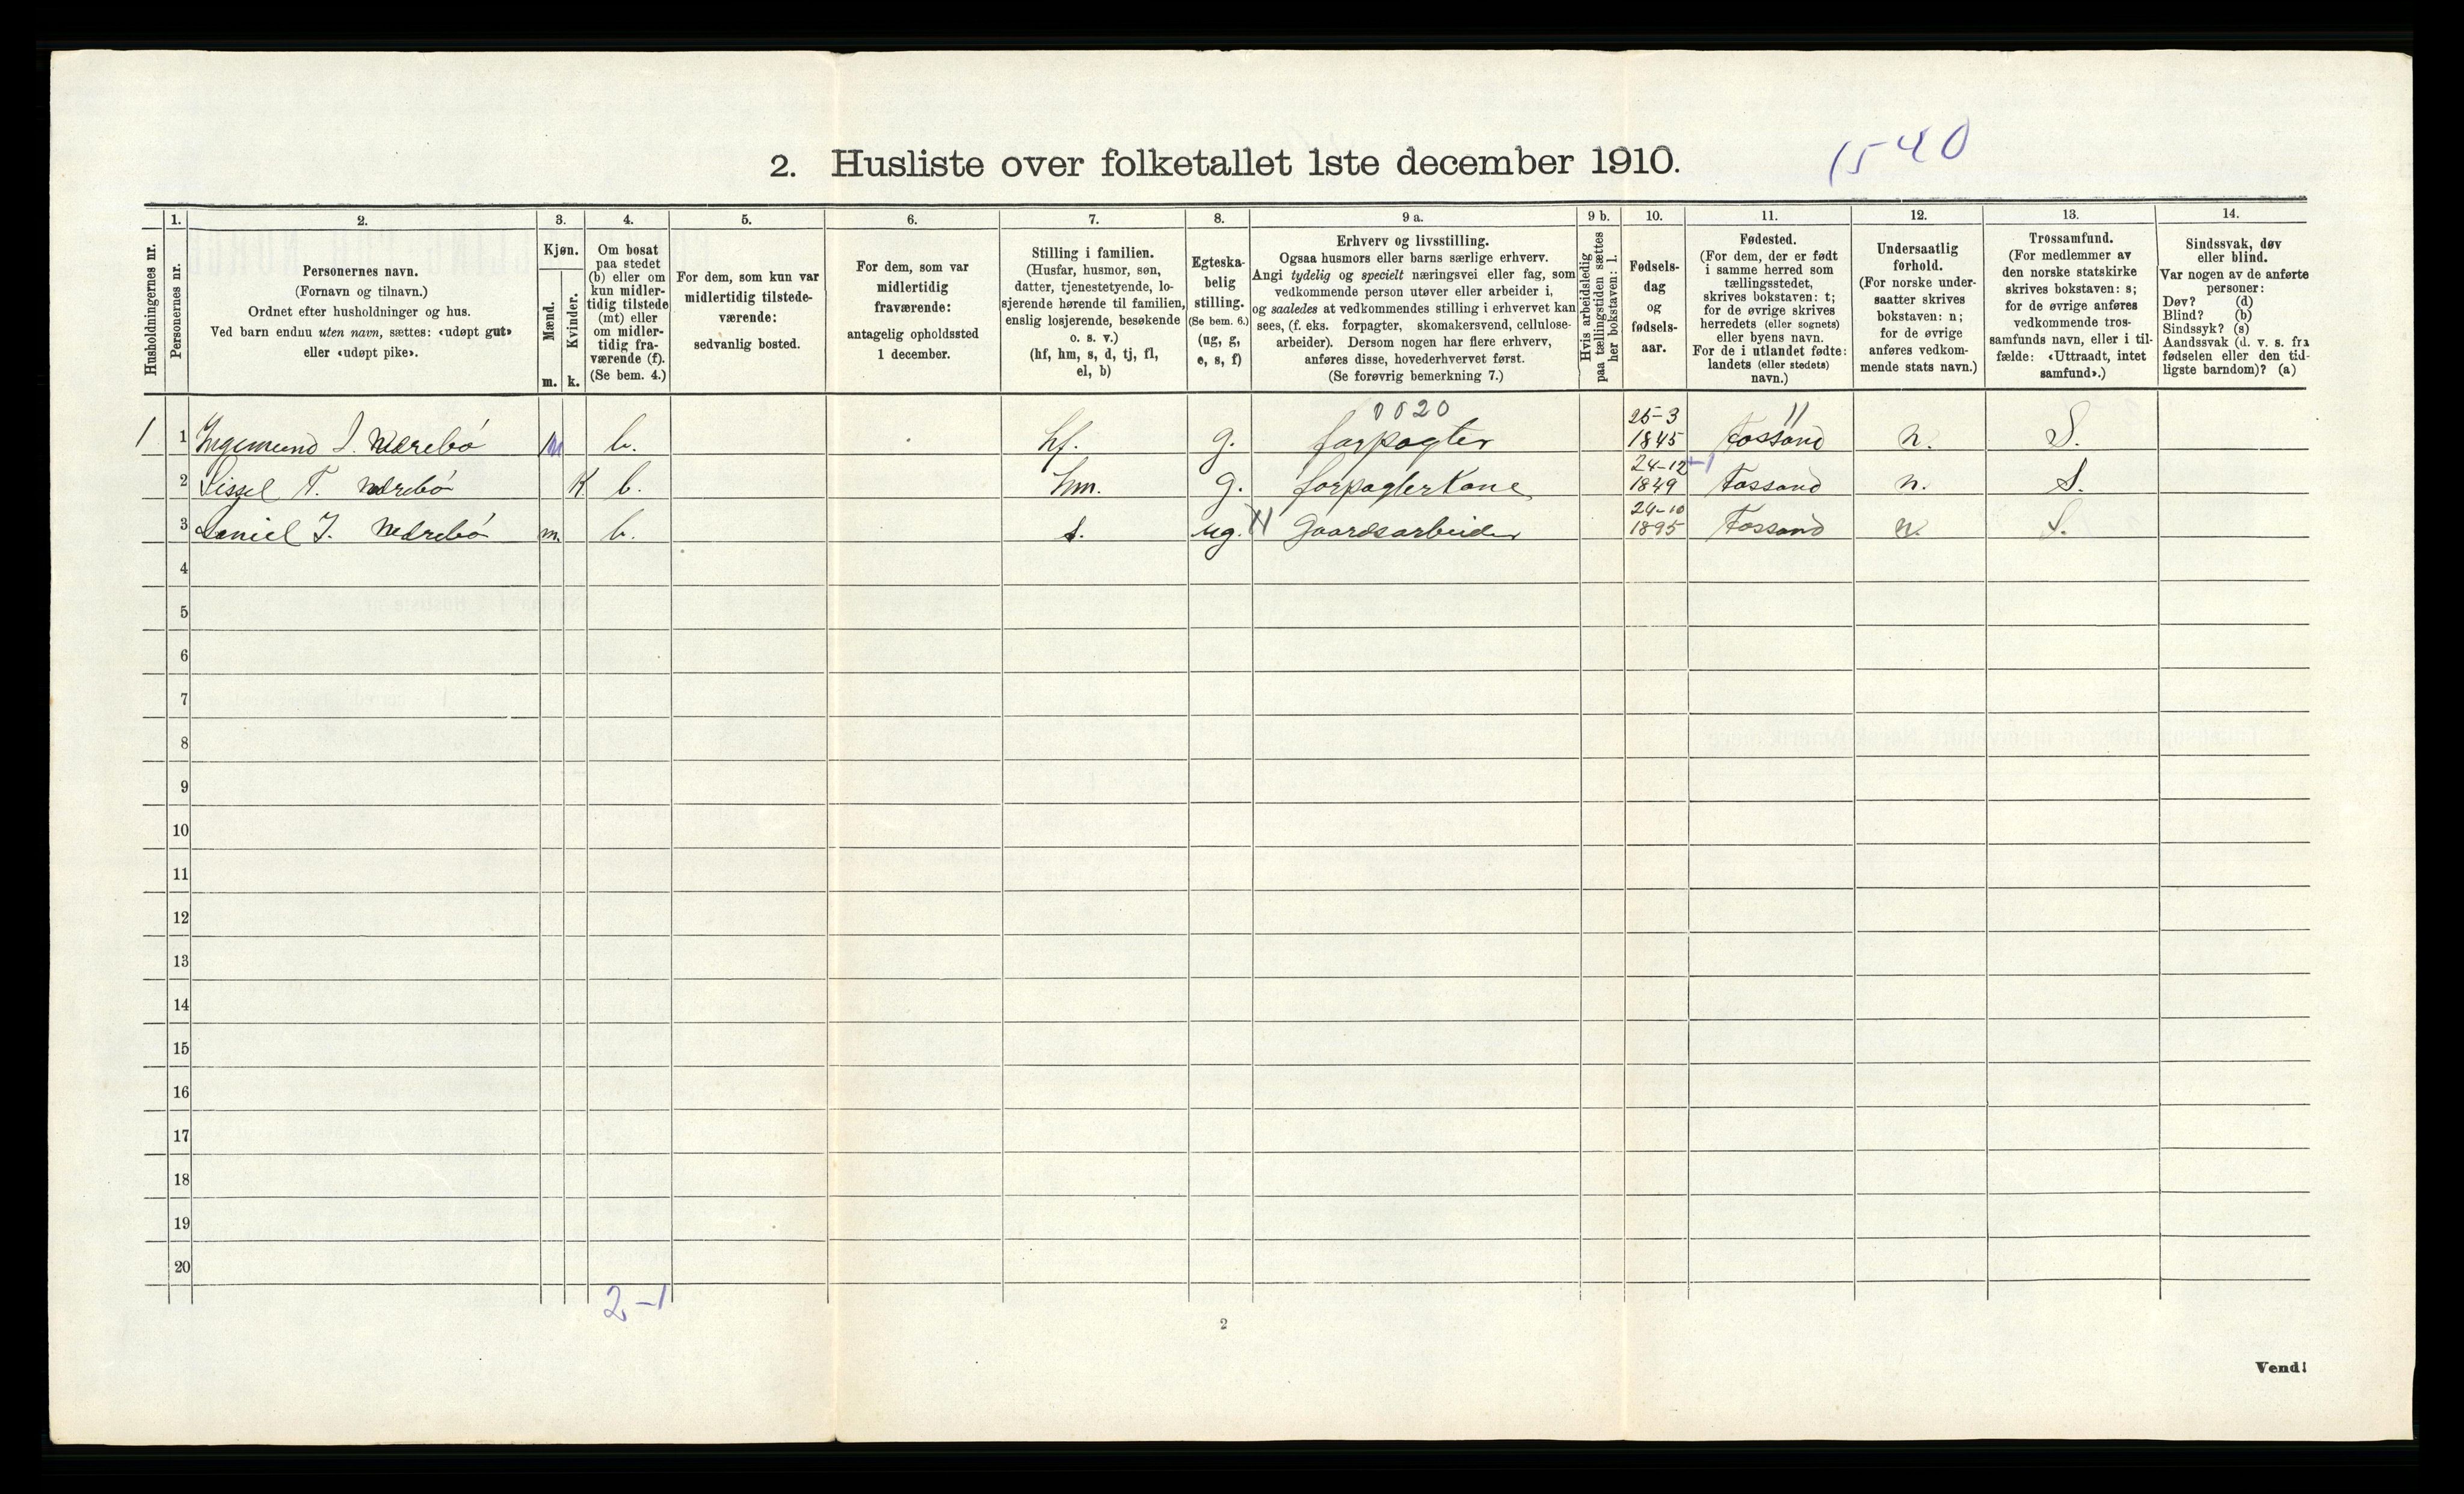 2. Husliste over folketallet 1ste december 1910.
1540
Husholdningernes nr.
1.
Personernes nr.
2.
Personernes navn.
(Fornavn og tilnavn.)
Ordnet efter husholdninger og hus.
Ved barn endnu uten navn, sættes: «udøpt gut»
eller «udøpt pike».
3.
Kjøn.
Mænd.
Kvinder.
m. k.
4.
Om bosat
paa stedet
(b) eller om
kun midler-
tidig tilstede
(mt) eller
om midler-
tidig fra-
værende (f).
(Se bem. 4.)
5.
For dem, som kun var
midlertidig tilstede-
værende:
sedvanlig bosted.
6.
For dem, som var
midlertidig
fraværende:
antagelig opholdssted
1 december.
7.
Stilling i familien.
(Husfar, husmor, søn,
datter, tjenestetyende, lo-
sjerende hørende til familien,
enslig losjerende, besøkende
o. s. v.)
(hf, hm, s, d, tj, fl,
el, b)
8.
Egteska-
belig
stilling.
(Se bem. 6.)
(ug, g,
e, s, f)
9 a.
Erhverv og livsstilling.
Ogsaa husmors eller barns særlige erhverv.
Angi tydelig og specielt næringsvei eller fag, som
vedkommende person utøver eller arbeider i,
og saaledes at vedkommendes stilling i erhvervet kan
sees, (f. eks. forpagter, skomakersvend, cellulose-
arbeider). Dersom nogen har flere erhverv,
anføres disse, hovederhvervet først.
(Se forøvrig bemerkning 7.)
9 b.
Hvis arbeidsledig
paa tællingstiden sættes
her bokstaven: l.
10.
Fødsels-
dag
og
fødsels-
aar.
11.
Fødested.
(For dem, der er født
i samme herred som
tællingsstedet,
skrives bokstaven: t;
for de øvrige skrives
herredets (eller sognets)
eller byens navn.
For de i utlandet fødte:
landets (eller stedets)
navn.)
12.
Undersaatlig
forhold.
(For norske under-
saatter skrives
bokstaven: n;
for de øvrige
anføres vedkom-
mende stats navn.)
13.
Trossamfund.
(For medlemmer av
den norske statskirke
skrives bokstaven: s;
for de øvrige anføres
vedkommende tros-
samfunds navn, eller i til-
fælde: «Uttraadt, intet
samfund».)
14.
Sindssvak, døv
eller blind.
Var nogen av de anførte
personer:
Døv? (d)
Blind? (b)
Sindssyk? (s)
Aandssvak (d. v. s. fra
fødselen eller den tid-
ligste barndom)? (a)
0020 25-3 11
1 1 Ingemund I. Nedrebø m b. hf. g. forpagter. 1845 Fossand n. S.
24-12 +1
2 Sissel T. Nedrebø K b. hm. g. forpagterkone 1849 Fossand n. S.
24-10
3 Daniel I. Nedrebø m. b. s. ug. H Gaardsarbeider 1895 Fossand n. S.
4
5
6
7
8
9
10
11
12
13
14
15
16
17
18
19
20
2-1
2
Vend!